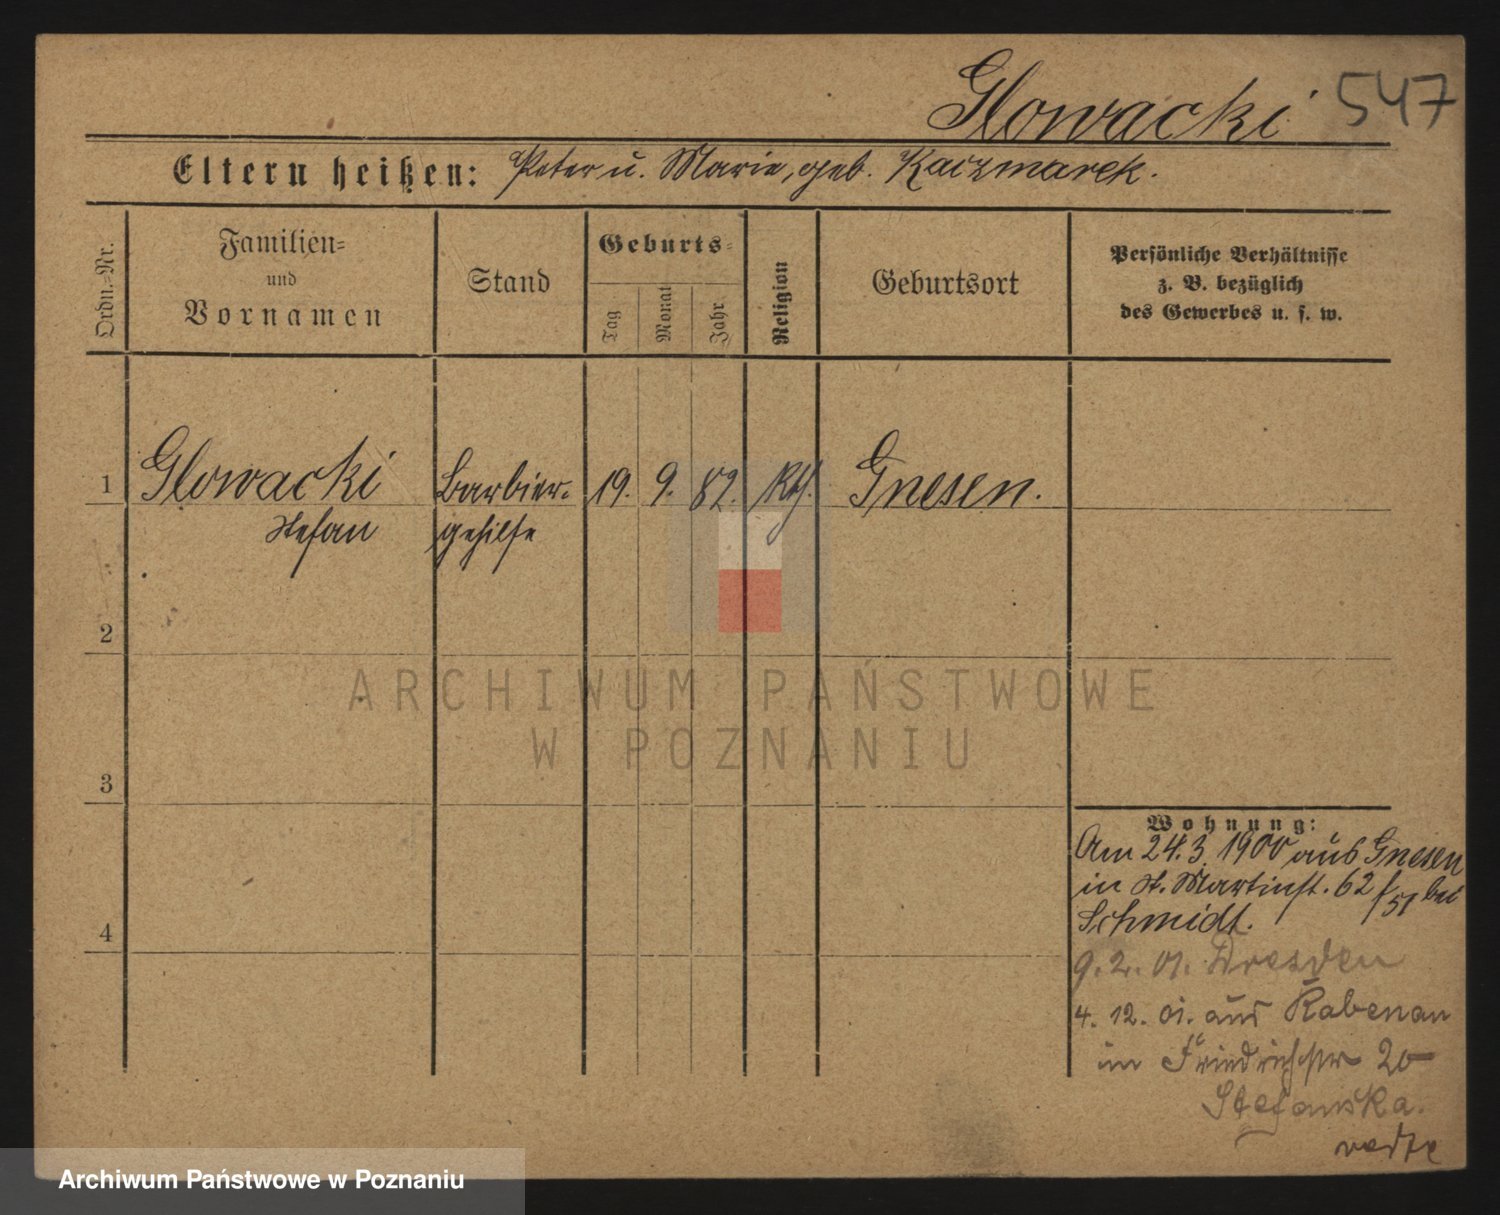 Glowacki 547
Eltern heißen: Peter u. Marie, geb. Kaczmarek.
Ordn.=Nr.
Familien=
und
Vornamen
Stand
Geburts=
Tag
Monat
Jahr
Religion
Geburtsort
Persönliche Verhältnisse
z. B. bezüglich
des Gewerbes u. s. w.
1 Glowacki Barbier= 19. 9. 82. Kth. Gnesen.
Stefan gehilfe
2
3
4
Wohnung:
Am 24.3.1900 aus Gnesen
in St. Martinst. 62 bei
Schmidt.
9.2.01. Dresden
4. 12. 01. aus Rabenau
in Friedrichstr 20
Stefanska.
ARCHIWUM PAŃSTWOWE
W POZNANIU
Archiwum Państwowe w Poznaniu